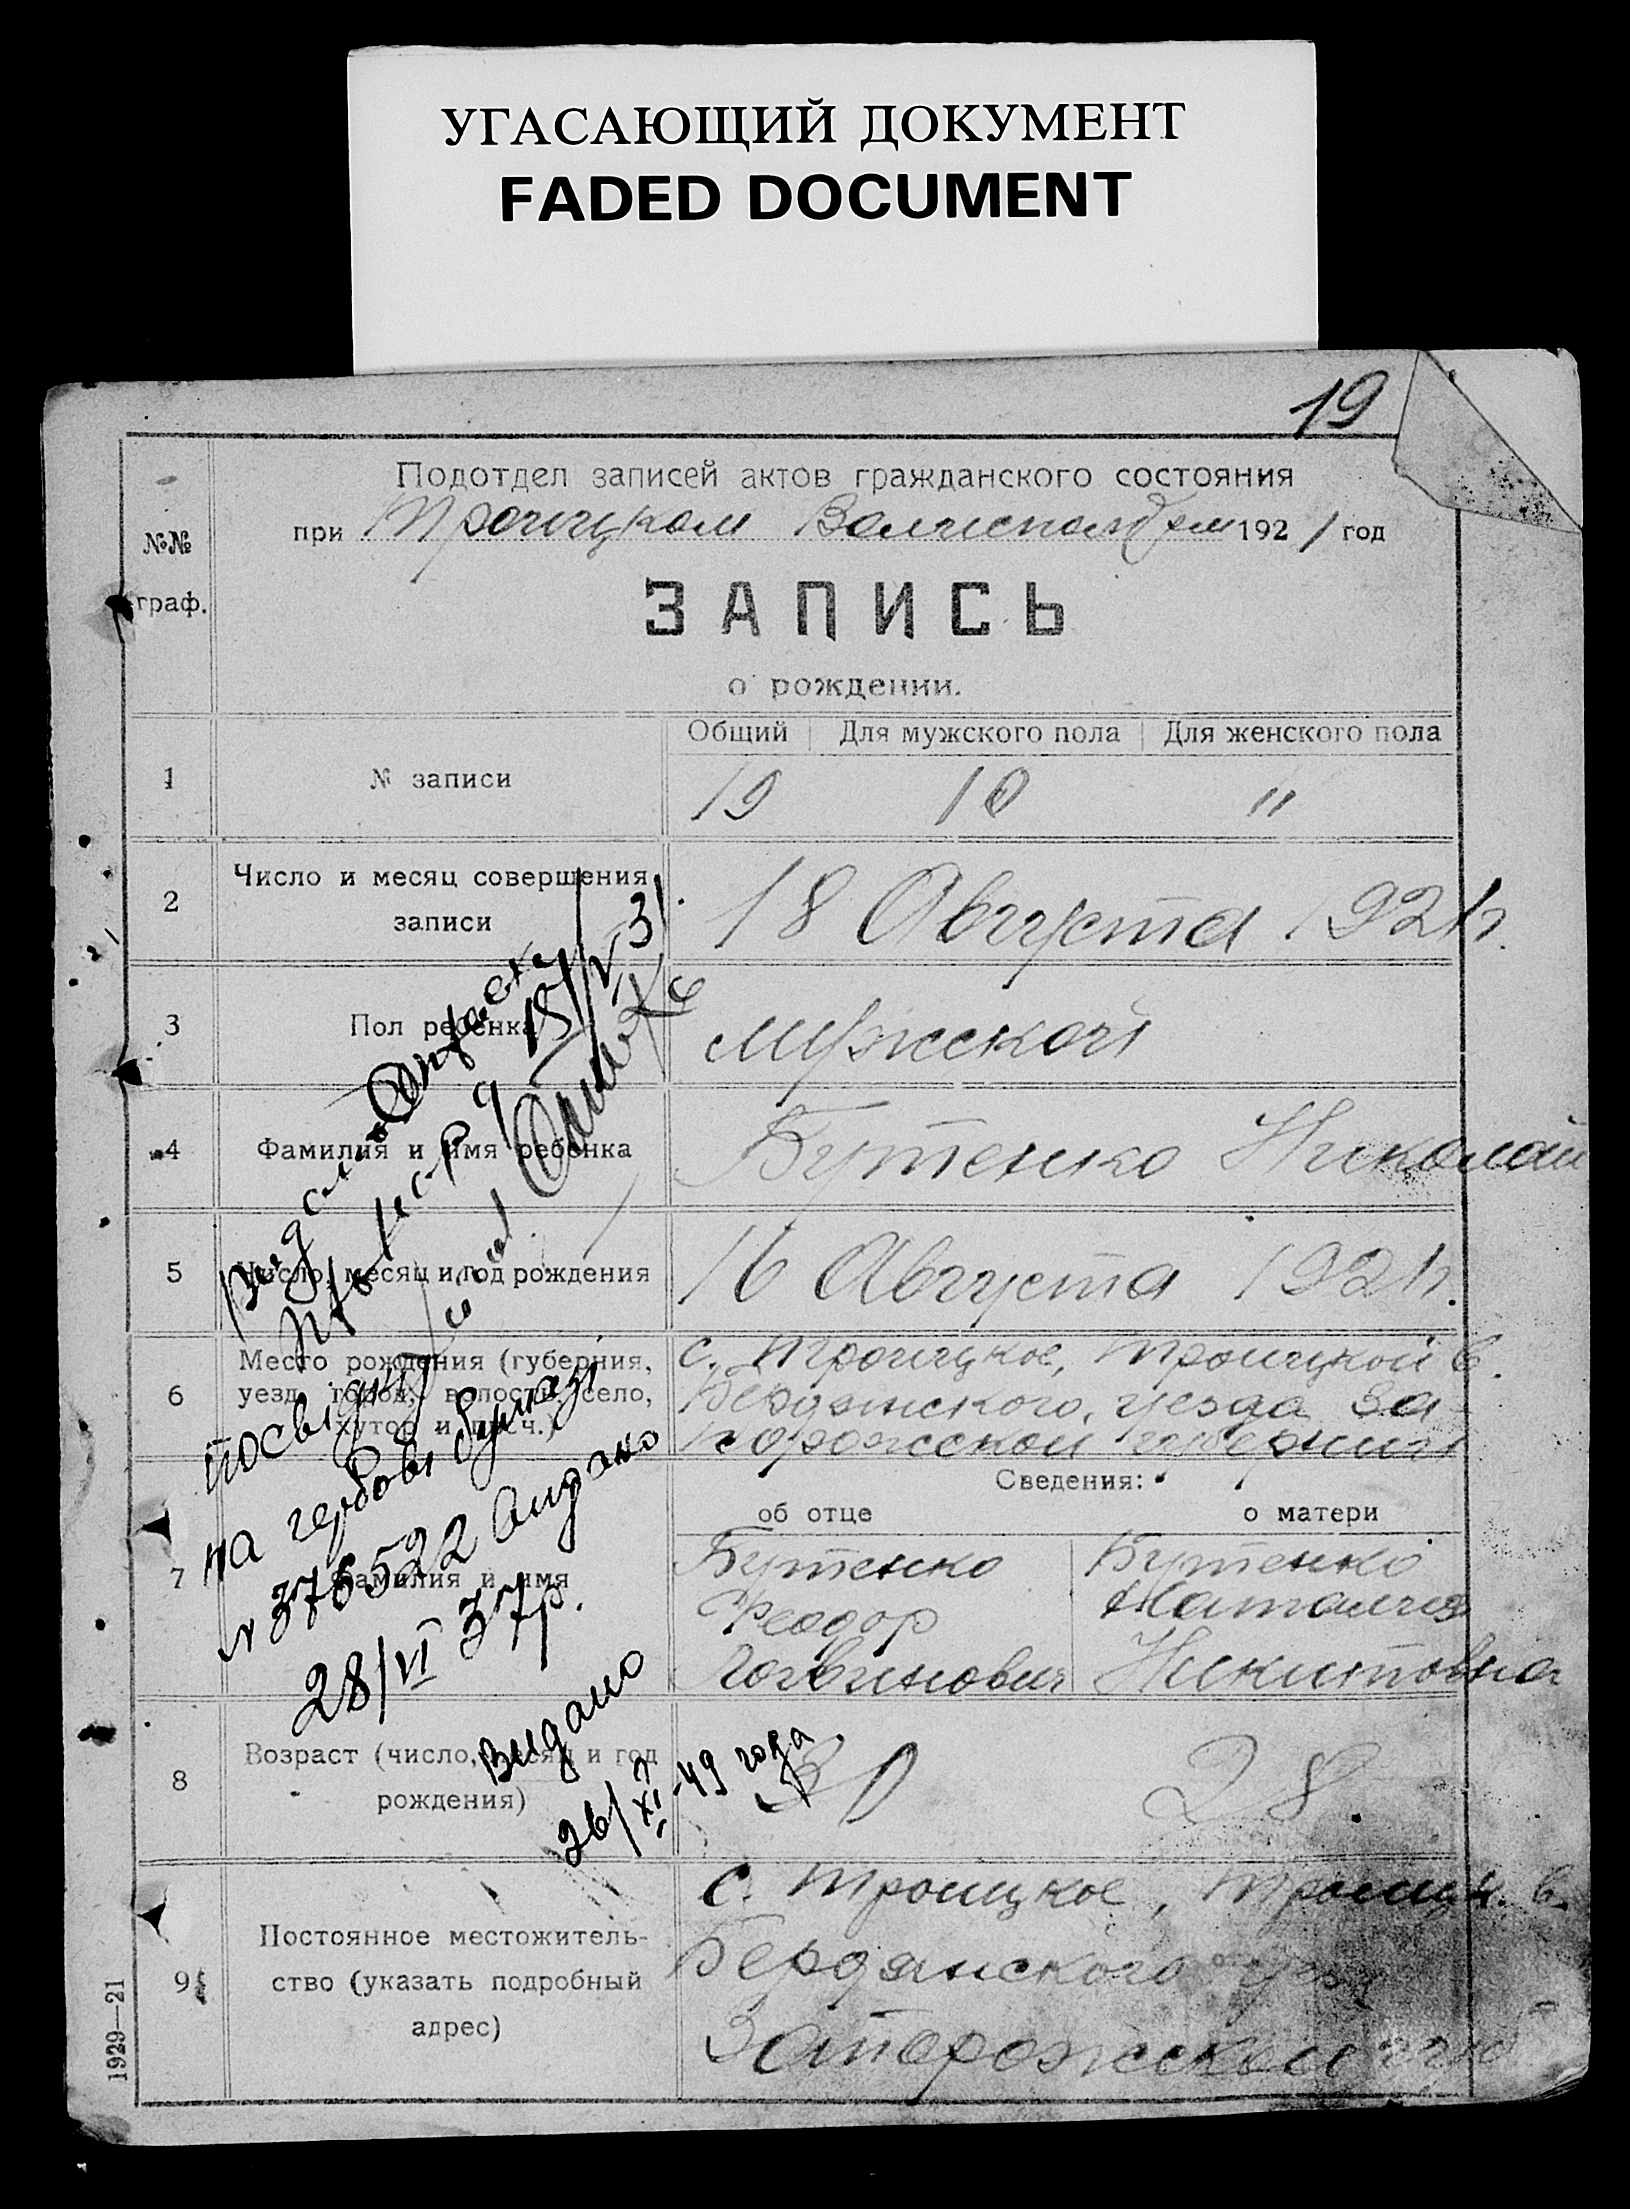 УГАСАЮЩИЙ ДОКУМЕНТ
FADED DOCUMENT
19
№№ граф.
Подотдел записей актов гражданского состояния
при Троицком 1921 год
ЗАПИСЬ
о рождении.
Общий Для мужского пола Для женского пола
1 № записи 19 10 "
2 Число и месяц совершения
записи
18 Августа 1921г.
3 Пол ребенка мужской
4 Фамилия и имя ребенка Бутенко Николай
5 Число, месяц и год рождения 16 Августа 1921г.
6 Место рождения (губерния,
уезд, город, волость, село,
хутор и проч.)
с. Троицкое, Троицкой в.
Бердянского, уезда За-
порожской губернии
Сведения:
об отце о матери
7 Фамилия и имя
Бутенко Бутенко
Феодор Наталия
Логвинович Никитовна
8 Возраст (число, месяц и год
рождения)
30 28.
9 Постоянное местожитель-
ство (указать подробный
адрес)
с. Троицкое, Троицк. в.
Бердянского уезд
Запорожской губ
15/V-31
посвідку
на гербові бумазі
№ 376522 видано
28/VI 37р.
Видано
26/XI-49 года
1929—21